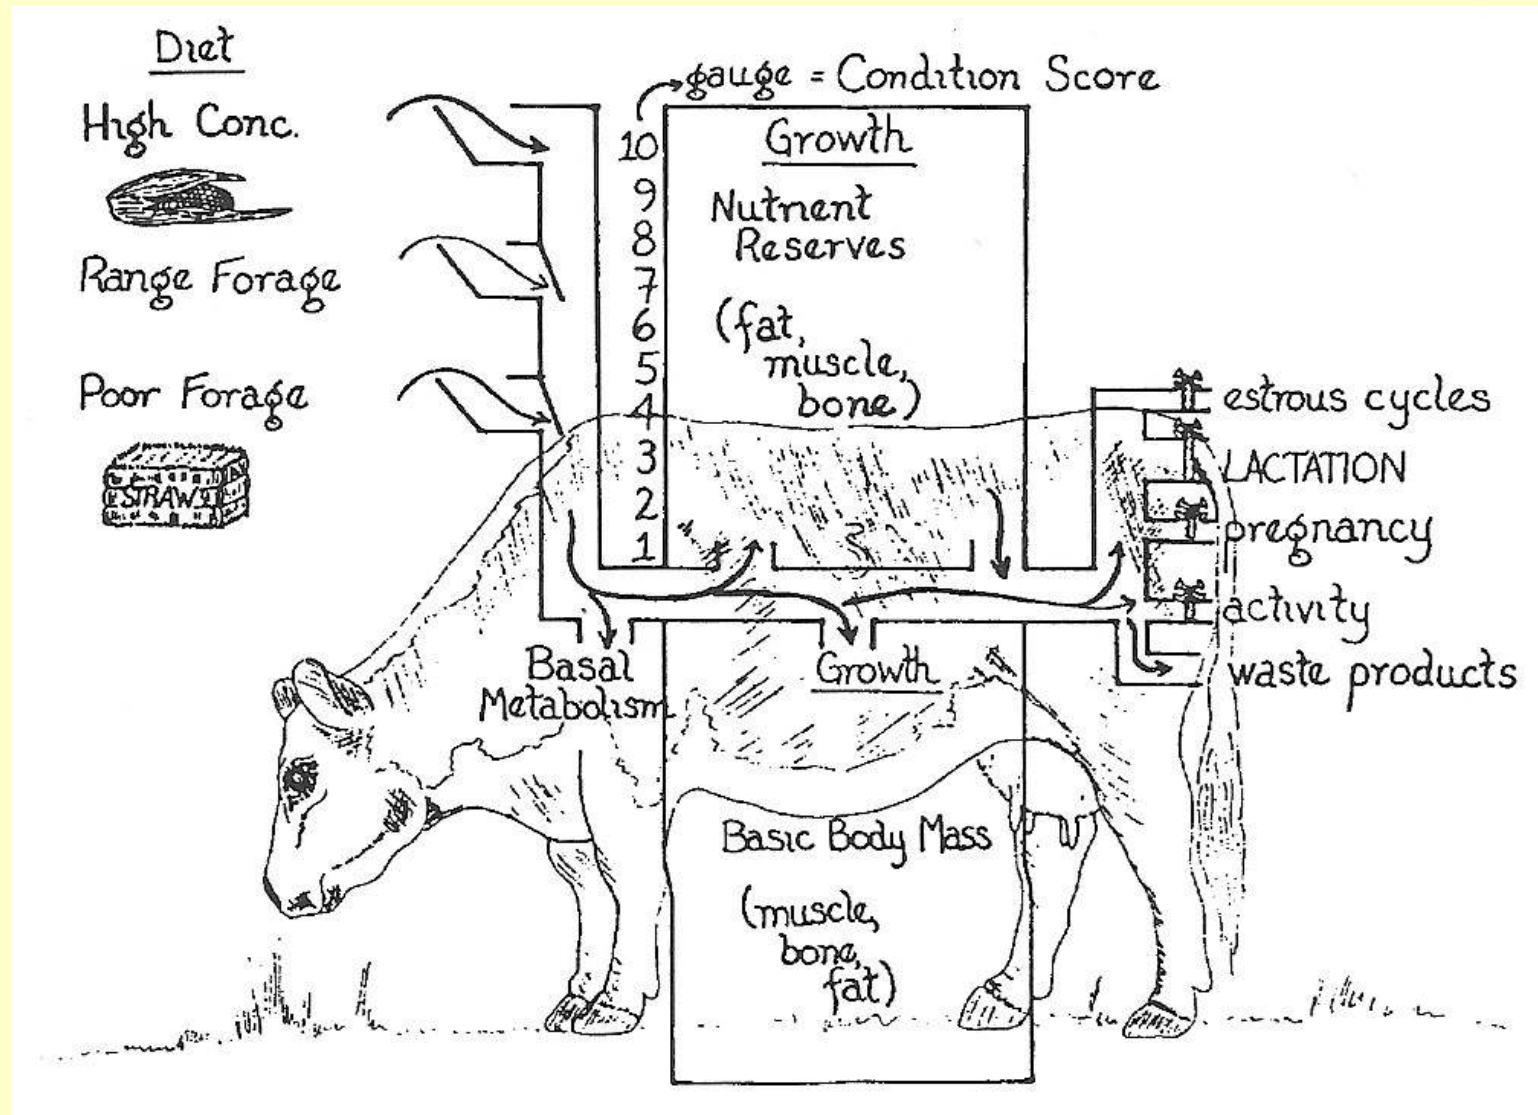 Diet
High Conc.
Range Forage
Poor Forage
STRAW
gauge = Condition Score
10
9
8
7
6
5
4
3
2
1
Growth
Nutrient
Reserves
(fat,
muscle,
bone)
estrous cycles
LACTATION
pregnancy
activity
waste products
Basal
Metabolism
Growth
Basic Body Mass
(muscle,
bone,
fat)